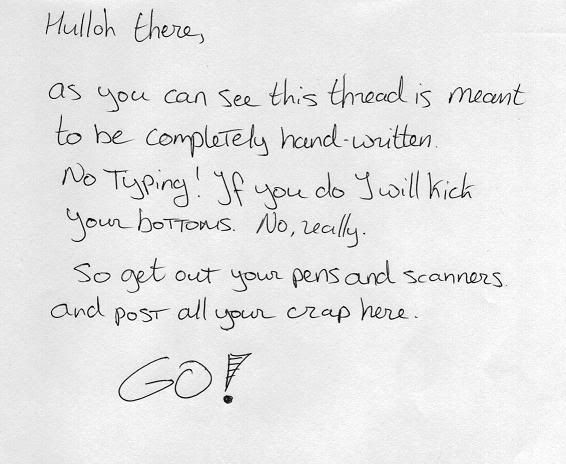 Hulloh there,
as you can see this thread is meant
to be completely hand-written.
No Typing! If you do I will kick
your bottoms. No, really.
So get out your pens and scanners
and post all your crap here.
GO!